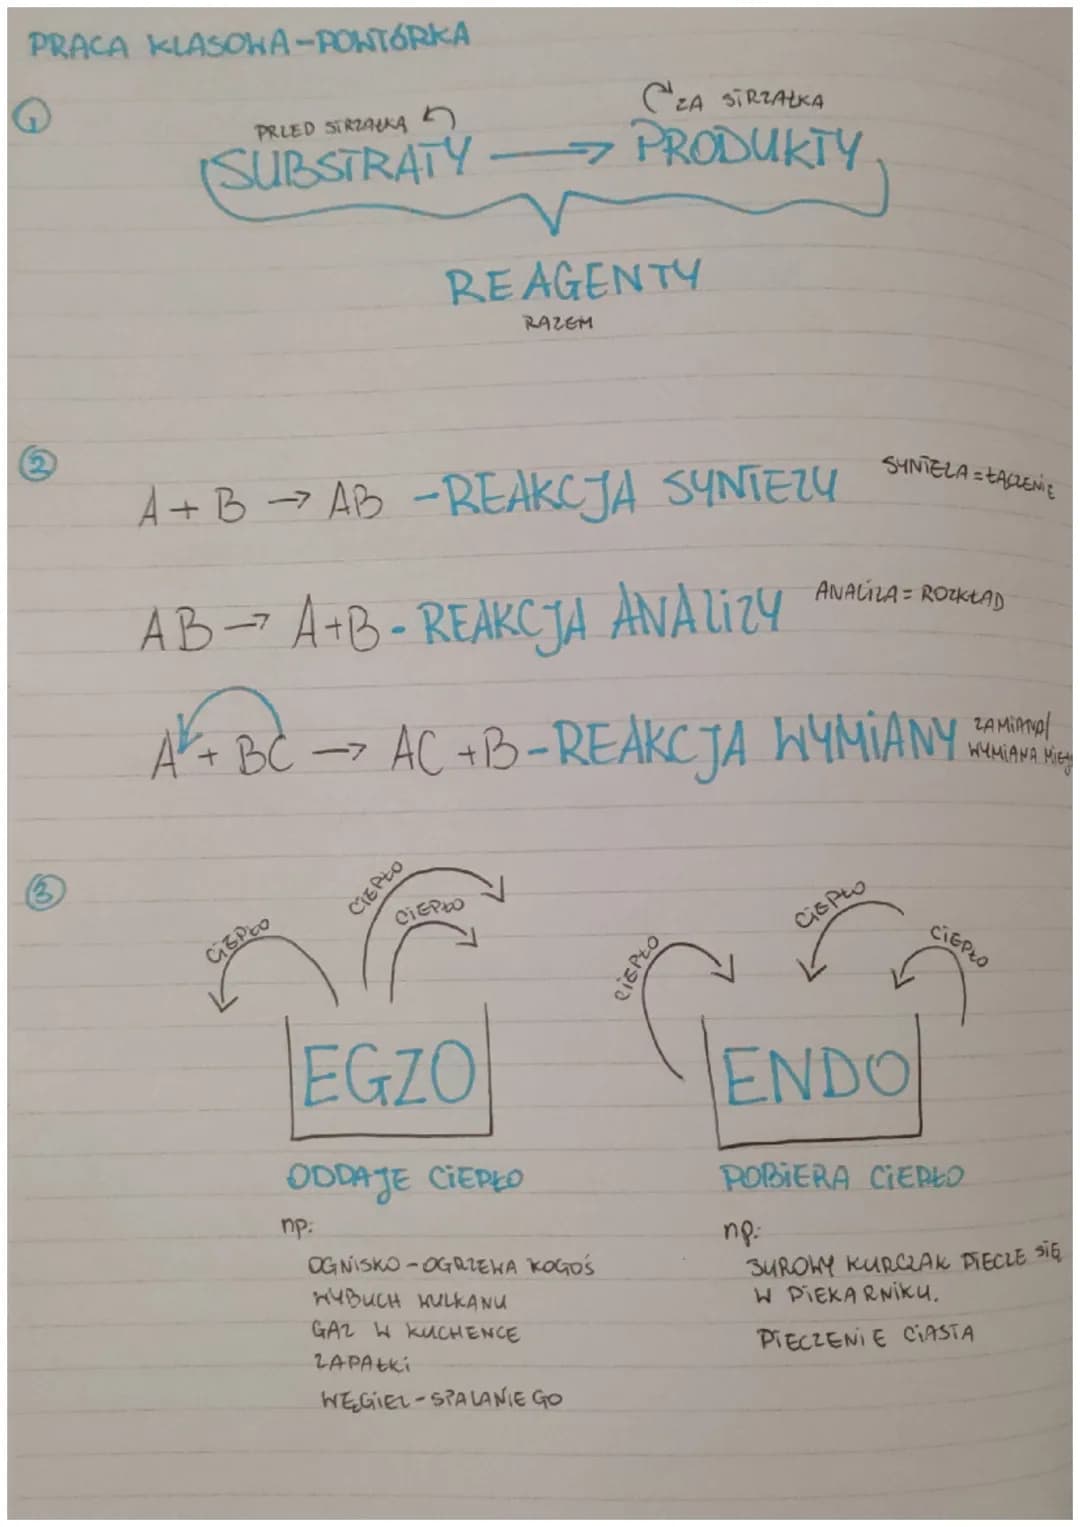 PRACA KLASOWA-POWTÓRKA
1
PRZED STRZAŁKĄ
ZA STRZAŁKĄ
SUBSTRATY → PRODUKTY
REAGENTY
RAZEM
2
A + B → AB - REAKCJA SYNTEZY
SYNTEZA = ŁĄCZENIE
AB → A+B - REAKCJA ANALIZY
ANALIZA = ROZKŁAD
A + BC → AC + B - REAKCJA WYMIANY
ZAMIANA/
WYMIANA
3
CIEPŁO
CIEPŁO
CIEPŁO
CIEPŁO
CIEPŁO
CIEPŁO
EGZO
ENDO
ODDAJE CIEPŁO
POBIERA CIEPŁO
np:
OGNISKO - OGRZEWA KOGOŚ
WYBUCH WULKANU
GAZ W KUCHENCE
ZAPAŁKI
WĘGIEL - SPALANIE GO
np:
SUROWY KURCZAK PIECZE SIĘ
W PIEKARNIKU.
PIECZENIE CIASTA